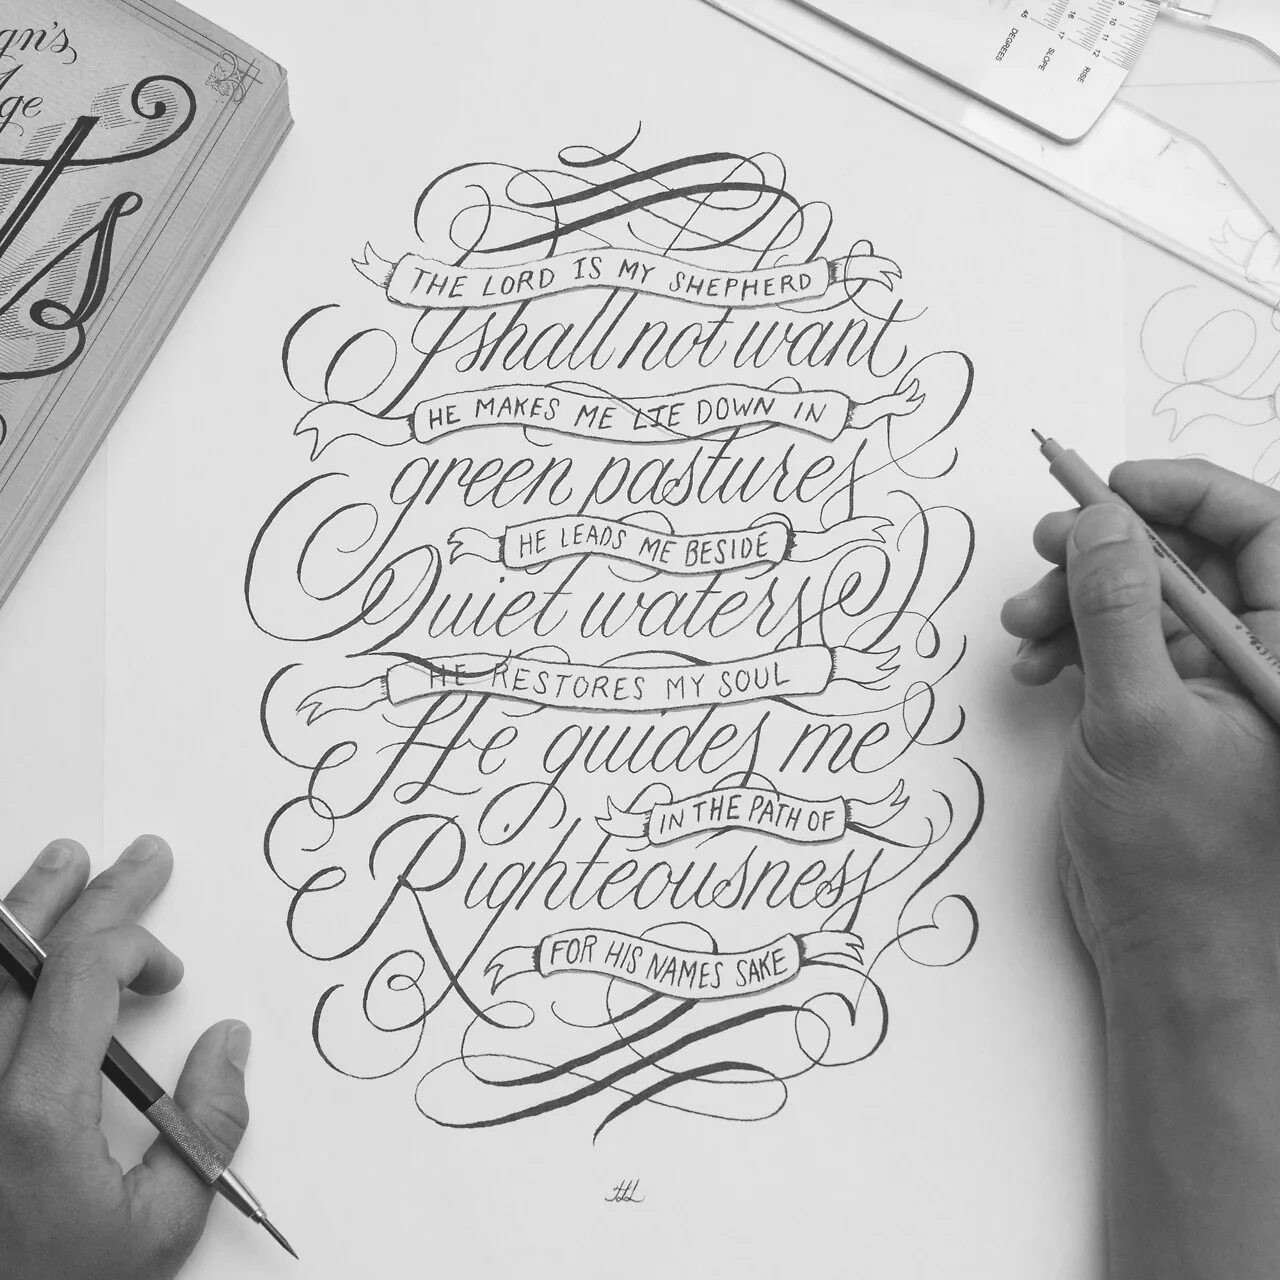 gn's
Age
ts
THE LORD IS MY SHEPHERD
I shall not want
HE MAKES ME LIE DOWN IN
green pastures
HE LEADS ME BESIDE
Quiet waters
HE RESTORES MY SOUL
He guides me
IN THE PATH OF
Righteousness
FOR HIS NAMES SAKE
45 16 17 9 10 11 12
DEGREES SLOPE RISE